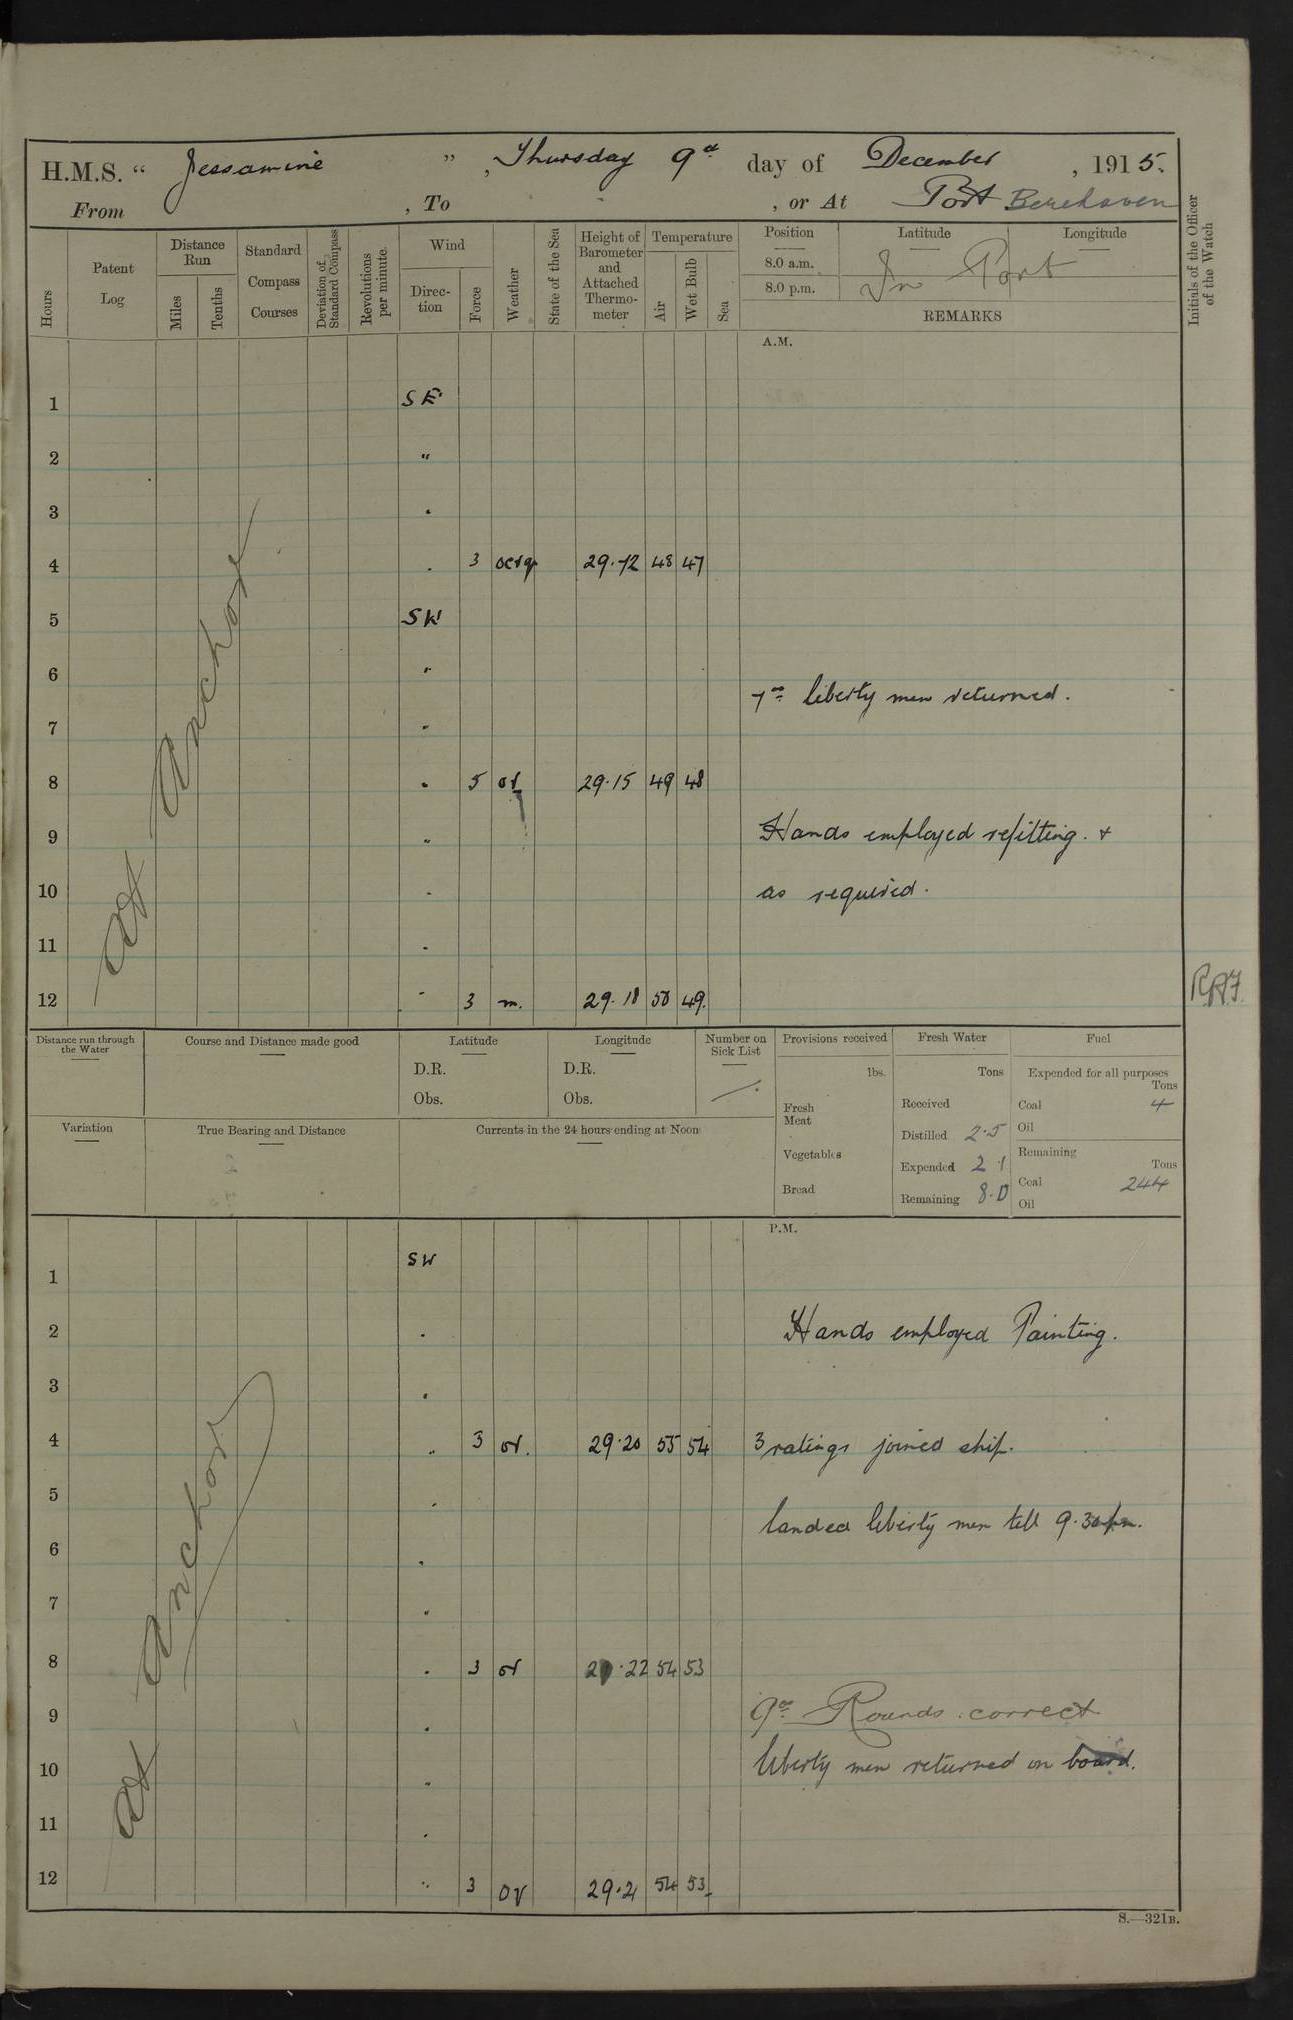 H.M.S. “ Jessamine ” , Thursday 9th day of December , 1915.
From , To , or At Port Berehaven
Hours
Patent Log
Distance Run
Miles
Tenths
Standard Compass Courses
Deviation of Standard Compass
Revolutions per minute.
Wind
Direction
Force
Weather
State of the Sea
Height of Barometer and Attached Thermometer
Temperature
Air
Wet Bulb
Sea
Position
Latitude
Longitude
8.0 a.m.
8.0 p.m.
In Port
REMARKS
Initials of the Officer of the Watch
A.M.
1 SE
2 "
3 "
4 " 3 29.12 48 47
5 SW
6 "
7th liberty men returned.
7 "
8 " 5 or 29.15 49 48
9 " Hands employed refitting. +
10 " as required.
11 "
12 " 3 m. 29.18 50 49.
At Anchor
Distance run through the Water
Course and Distance made good
Latitude
D.R.
Obs.
Longitude
D.R.
Obs.
Number on Sick List
Variation
True Bearing and Distance
Currents in the 24 hours ending at Noon
Provisions received
lbs.
Fresh Meat
Vegetables
Bread
Fresh Water
Tons
Received
Distilled 2.5
Expended 2.1
Remaining 8.0
Fuel
Expended for all purposes
Tons
Coal 4
Oil
Remaining
Tons
Coal 244
Oil
P.M.
1 SW
2 " Hands employed Painting.
3 "
4 " 3 or. 29.20 55 54 3 ratings joined ship.
5 "
landed liberty men till 9.30 pm.
6 "
7 "
8 " 3 or 29.22 54 53
9 " 9th Rounds correct
10 " liberty men returned on board.
11 "
12 " 3 or 29.21 54 53
At Anchor
S.—321B.